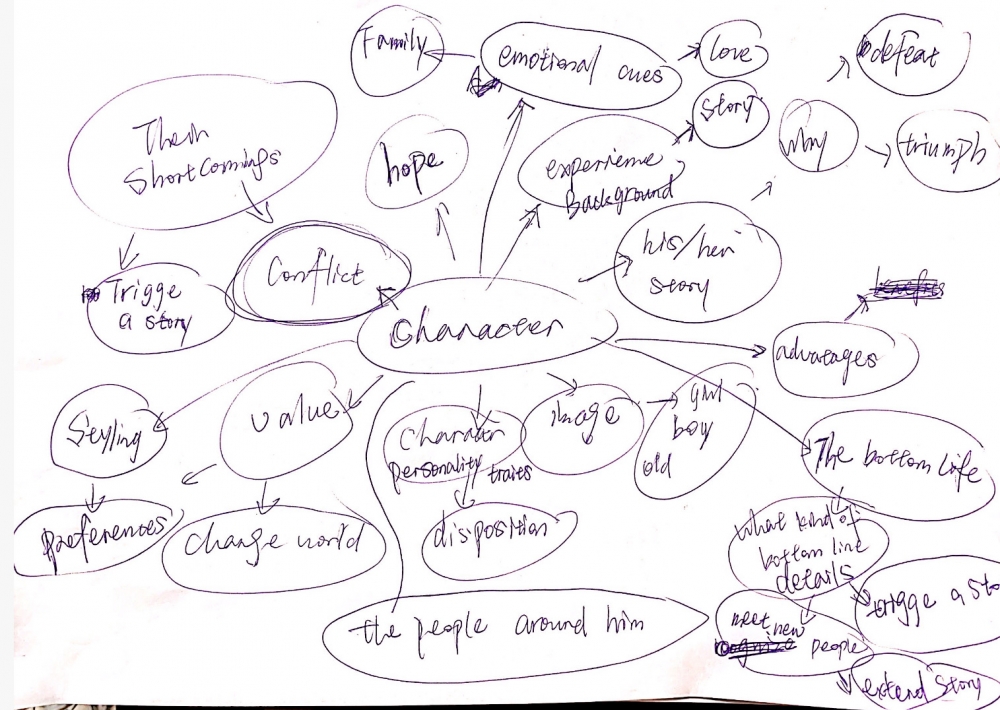 Family
emotional cues
love
defeat
Their
shortcomings
hope
experieme
Background
story
why
triumph
his/her
story
Trigge
a story
Conflict
Character
advatages
benefits
Seyling
value
Character
personality traits
image
girl
boy
old
The bottom life
preferences
change world
disposition
what kind of
bottom line
details
trigge a sto
the people around him
meet new
people
extend story